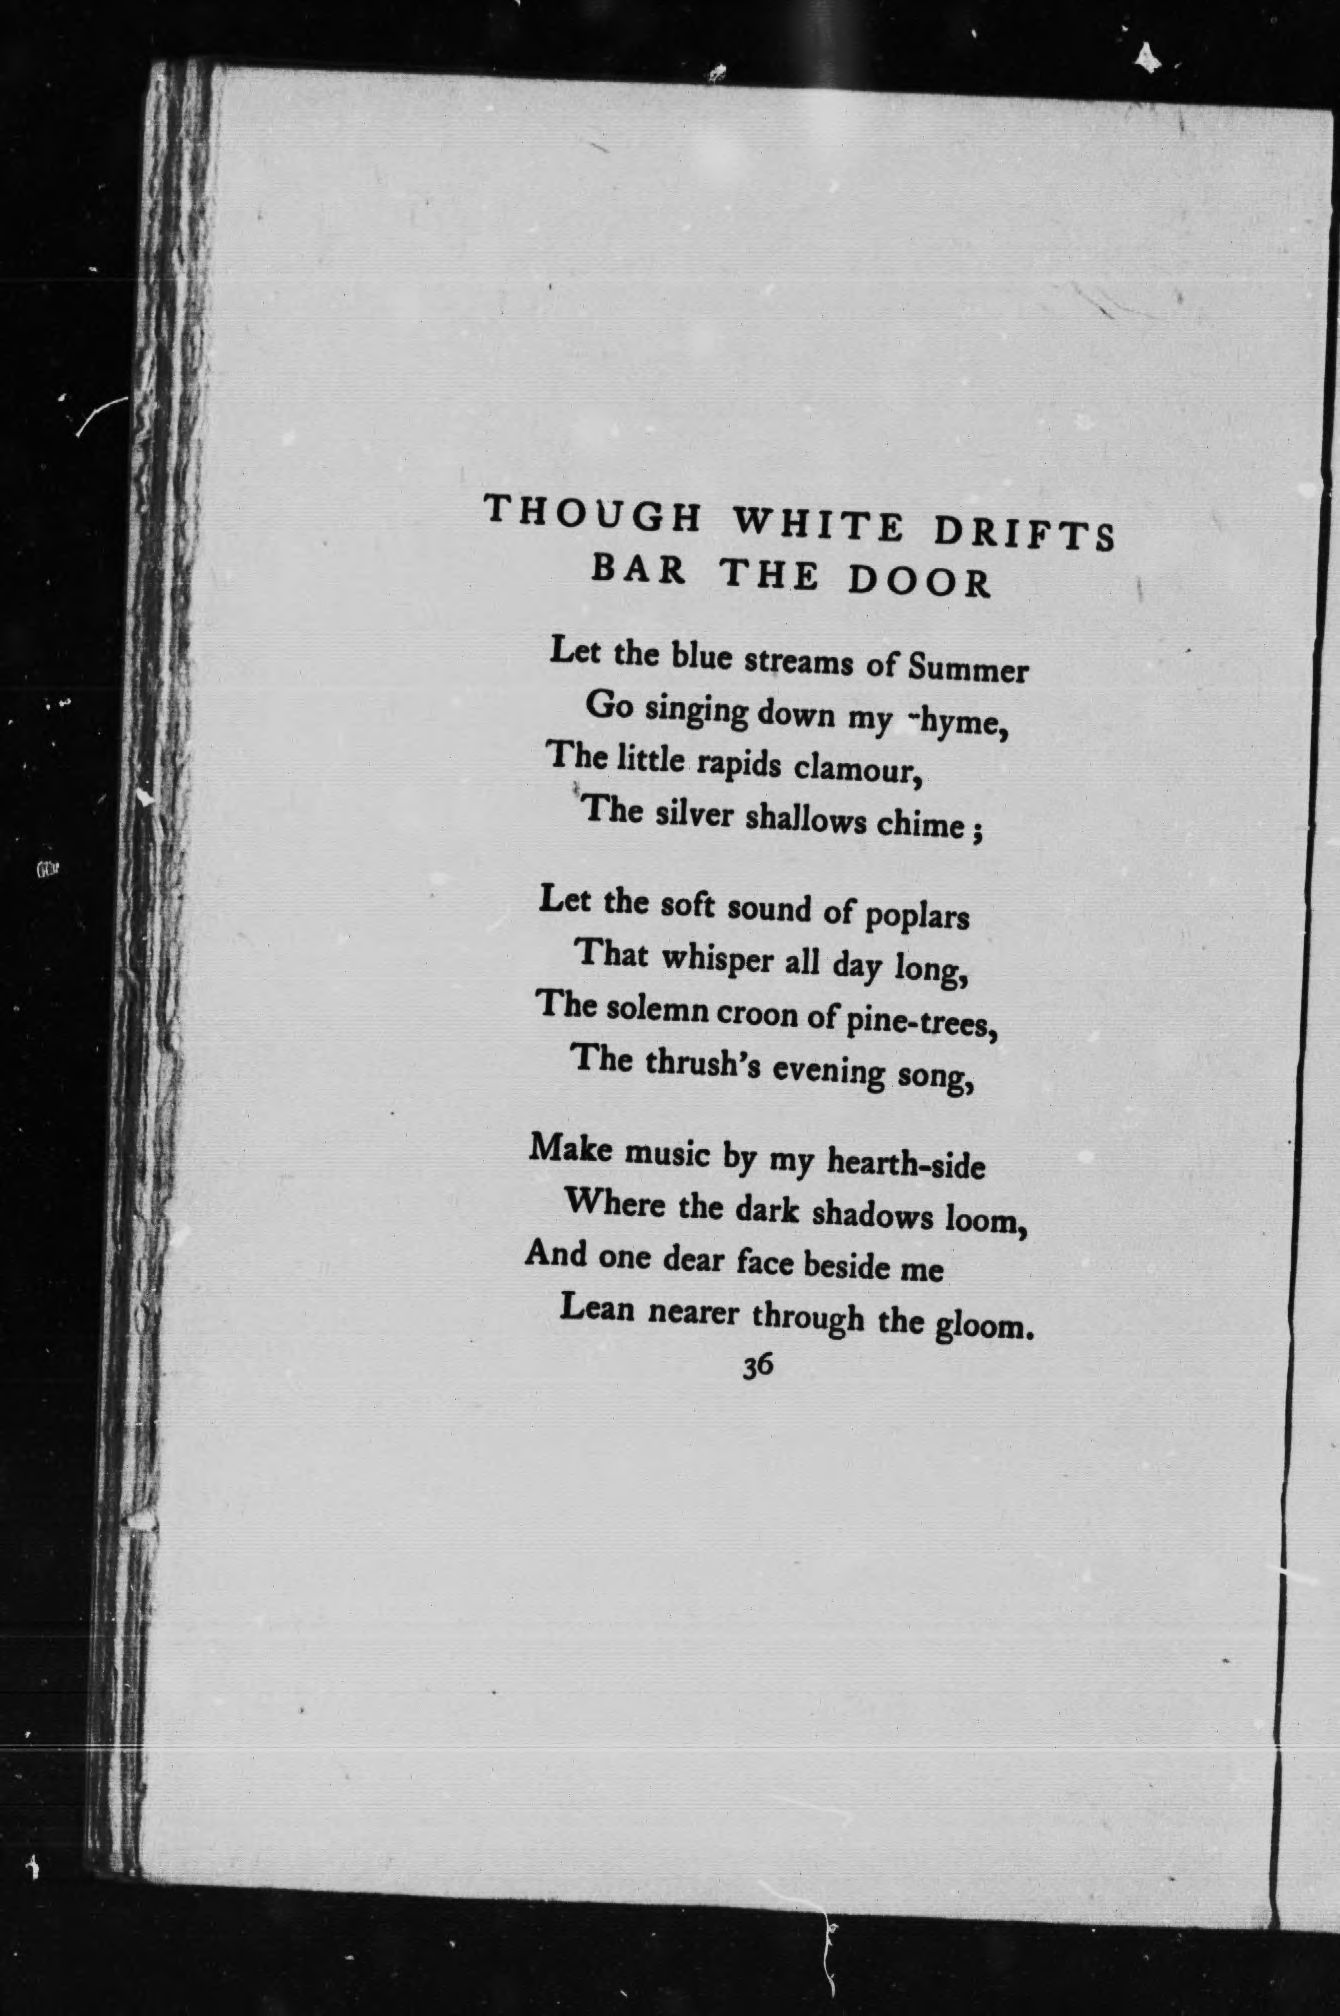 THOUGH WHITE DRIFTS
BAR THE DOOR
Let the blue streams of Summer
Go singing down my rhyme,
The little rapids clamour,
The silver shallows chime ;
Let the soft sound of poplars
That whisper all day long,
The solemn croon of pine-trees,
The thrush's evening song,
Make music by my hearth-side
Where the dark shadows loom,
And one dear face beside me
Lean nearer through the gloom.
36